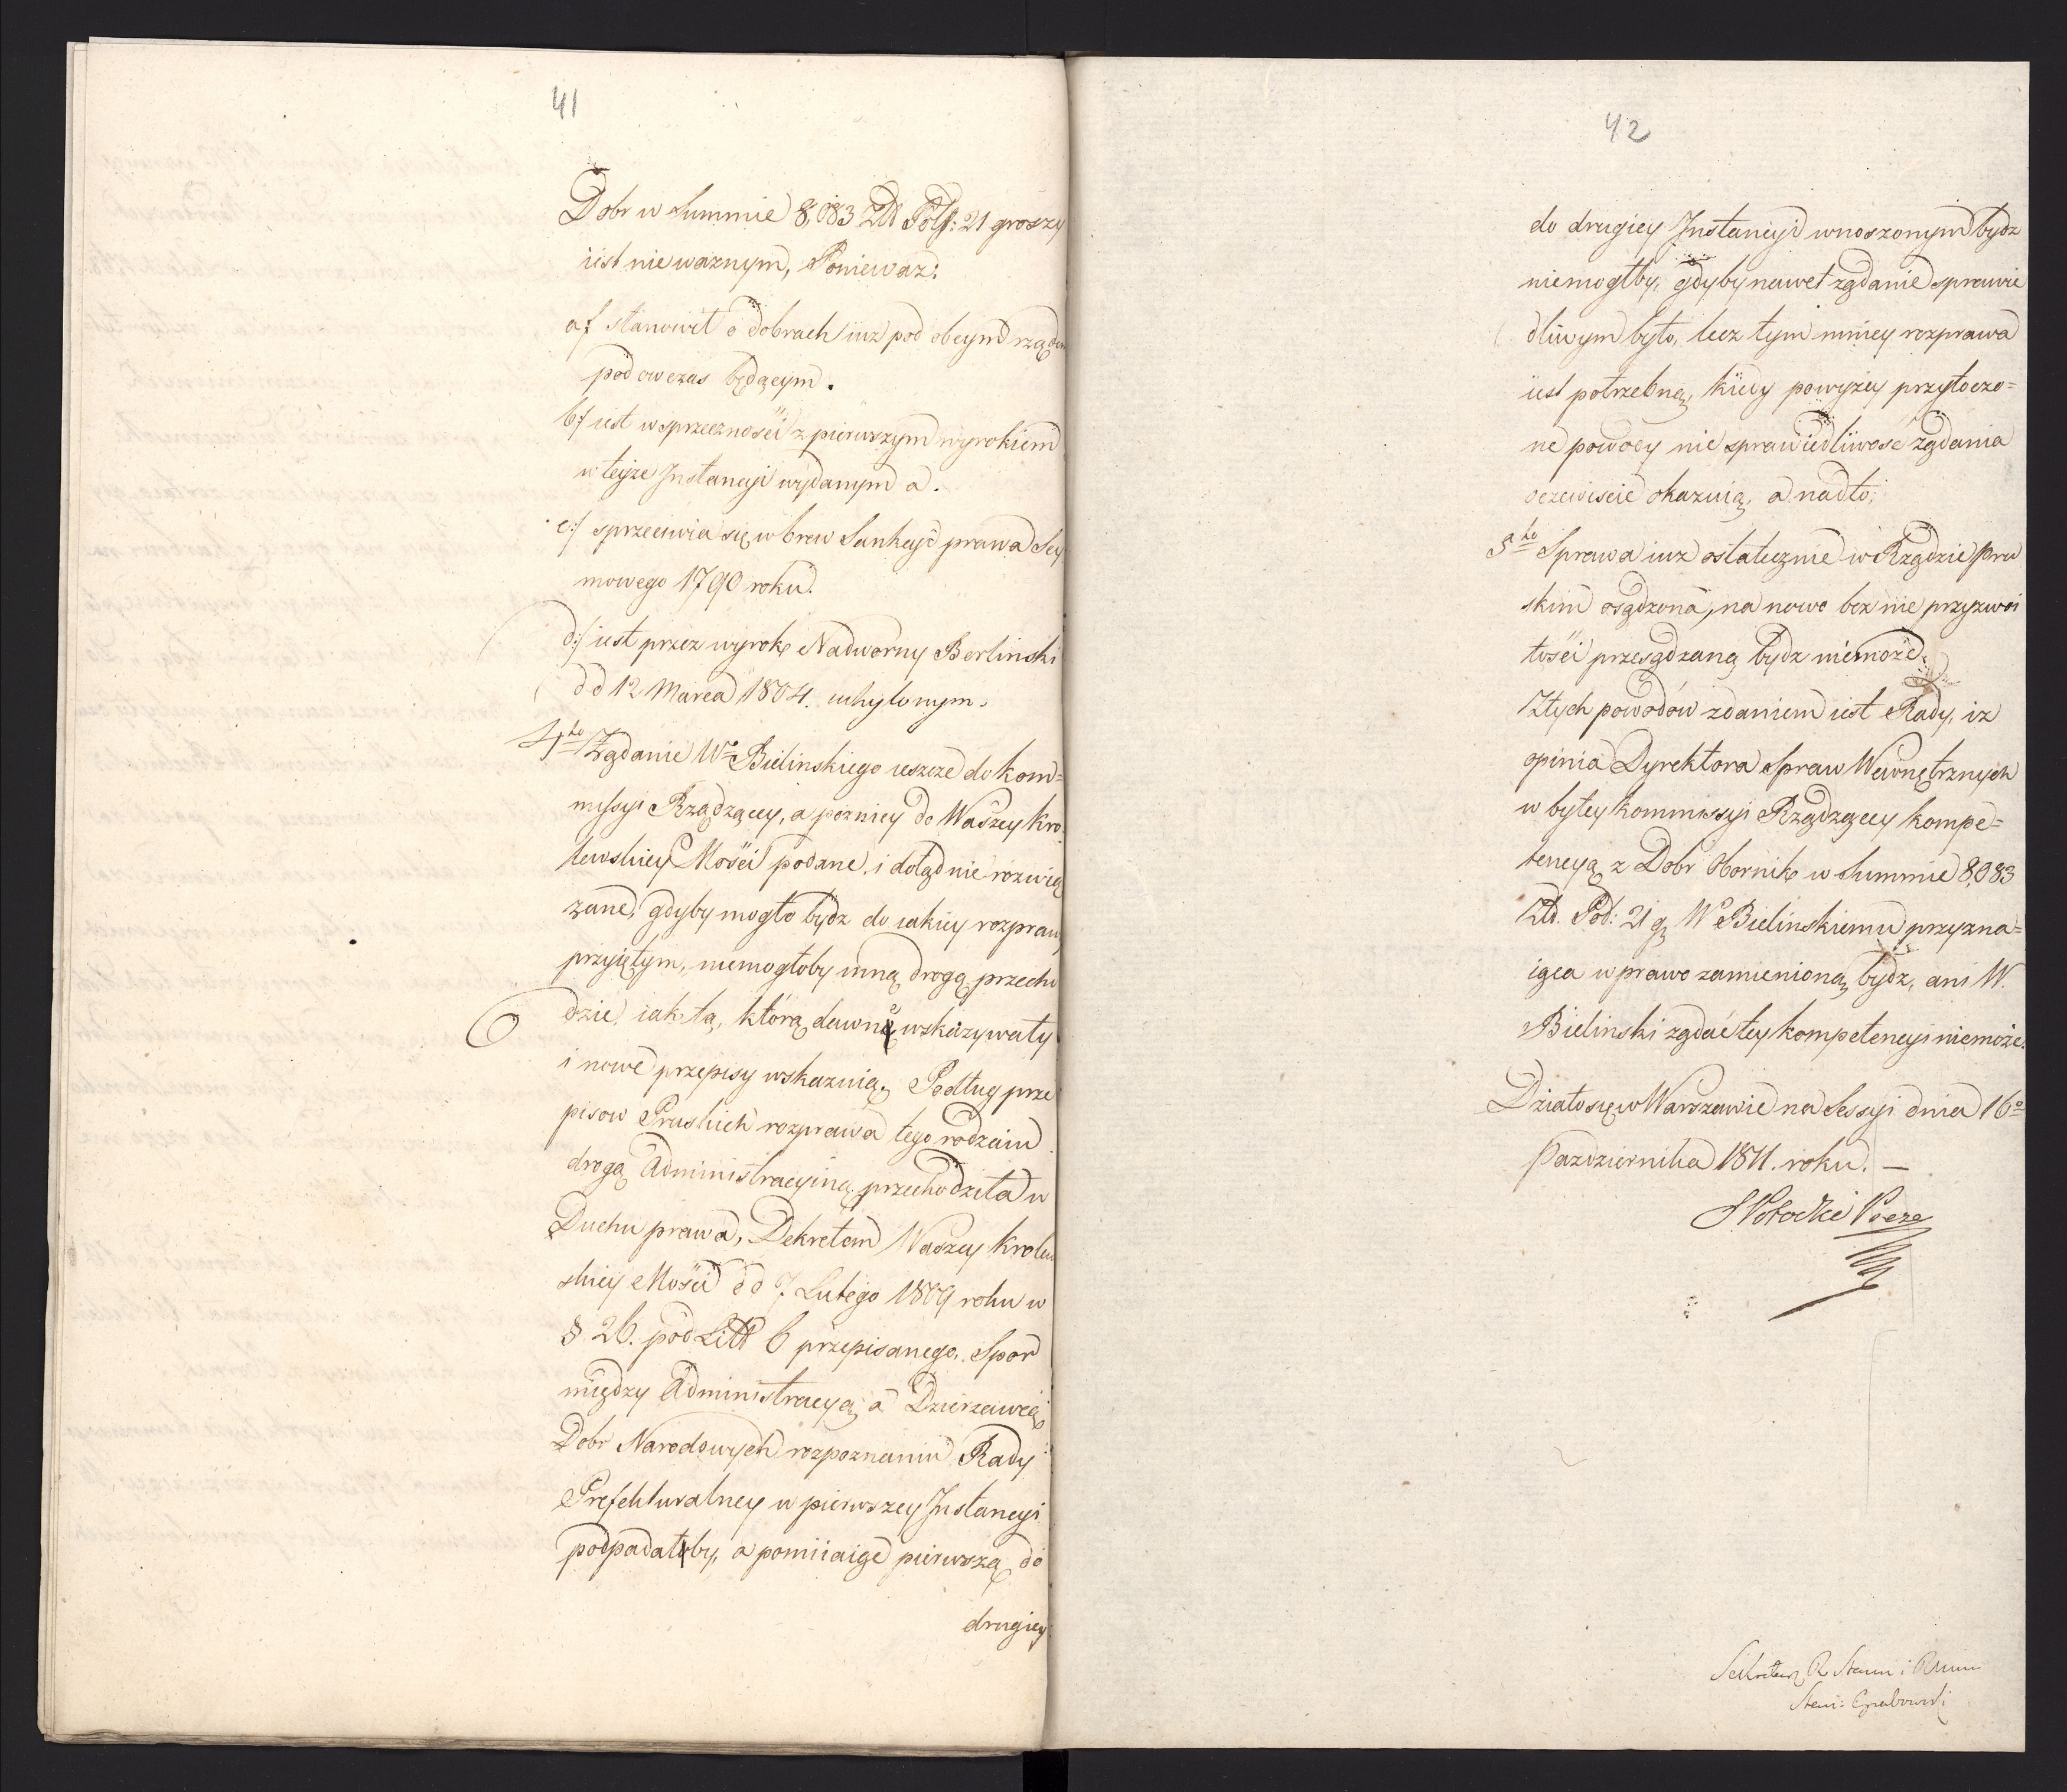 41
Dobr w Summie 8,083 Zł Pols: 21 groszy
iest nieważnym, Ponieważ:
a/ stanowił o dobrach iuż pod obcym rządem
podowczas będącym.
b/ iest w sprzeczności z pierwszym wyrokiem
w teyże Instancyi wydanym a.
c:/ sprzeciwia się wbrew Sankcyi prawa Sey
mowego 1790 roku.
d:/ iest przez wyrok Nadworny Berliński
dd 12 Marca 1804. uchylonym.
4to Żądanie Wo Bielinskiego ieszcze do Kom=
missyi Rządzącey, a pozniey do Waszey Kro
lewskiey Mości podane, i dotąd nie rozwią
zane, gdyby mogło bydz do iakiey rozpraw
przyiętym, niemogłoby inną drogą przecho
dzić, iak tą, którą dawne wskazywały
i nowe przepisy wskazuią. Podług prze
pisow Pruskich rozprawa tego rodzaiu
drogą Administracyiną przechodziła w
Duchu prawa, Dekretem Waszey Krolew
skiey Mości dd 7. Lutego 1809 roku w
§ 26. pod Litt b przepisanego. Spor
między Administracyą a Dzierzawcą
Dobr Narodowych rozpoznaniu Rady
Prefekturalney w pierwszey Instancyi
podpadałby, a pomiiaiąc pierwszą do
drugiey
42
do drugiey Instancyi wnoszonym bydz
niemogłby, gdyby nawet żądanie sprawie
dliwym było, lecz tym mniey rozprawa
iest potrzebną, kiedy powyżey przytoczo=
ne powody nie sprawiedliwosć żądania
oczewiscie okazuią, a nadto;
5to Sprawa iuż ostatecznie w Rządzie Pru
skim osądzona, na nowo bez nie przyzwoi
tości przesądzaną bydz niemoże.
Z tych powodów zdaniem iest Rady, iz
opinia Dyrektora Spraw Wewnętrznych
w byłey Kommissyi Rządzącey kompe=
tencyą z Dobr Obornik w Summie 8,083
Zł. Pol: 21 g Wo Bielinskiemu przyzna=
iąca w prawo zamienioną bydz, ani W.
Bielinski żądać tey kompetencyi niemoże.
Działo się w Warszawie na Sessyi dnia 16o
Pazdziernika 1811. roku. —
S Potocki Preze
Sekretarz R Stanu i
Stan: Grabowski